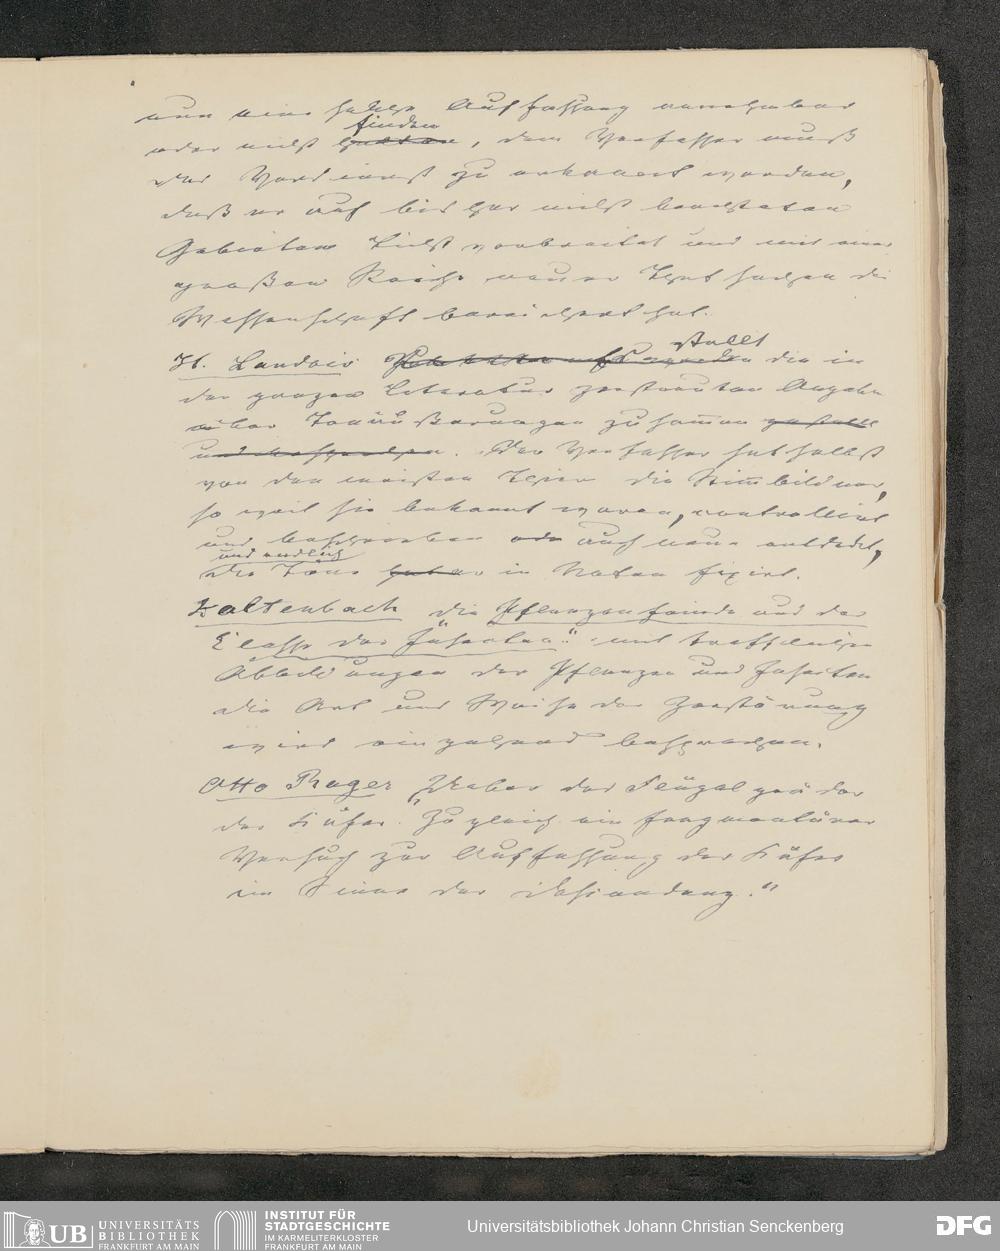 nun eine solche Auffassung annehmbar
finden
oder nicht halten, dem Verfasser muß
das Verdienst zu erkannt werden,
daß er auf bisher nicht beachteten
Gebieten Licht verbreitet und mit einer
großen Reihe neuer Thatsachen die
Wissenschaft bereichert hat.
stellt
H. Landois die in
der ganzen Literatur zerstreuten Angaben
über Tonäußerungen zusamen gestellt
und. Der Verfasser hat selbst
von den meisten Thieren die Stimmbildner,
so weit sie bekannt waren, controllirt
und beschrieben oder auch neue entdeckt,
und endlich
die Töne in Noten fixirt.
Kaltenbach die Pflanzenfeinde aus der
Classe der Insecten" mit trefflichen
Abbildungen der Pflanzen und Insecten
die Art und Weise der Zerstörung
wird eingehend besprochen.
Otto Rager Ueber das Flügelgeäder
der Käfer. Zugleich ein fragmentärer
Versuch zur Auffassung der Käfer
im Sinne der
UB UNIVERSITÄTS
BIBLIOTHEK
FRANKFURT AM MAIN
INSTITUT FÜR
STADTGESCHICHTE
IM KARMELITERKLOSTER
FRANKFURT AM MAIN
Universitätsbibliothek Johann Christian Senckenberg
DFG